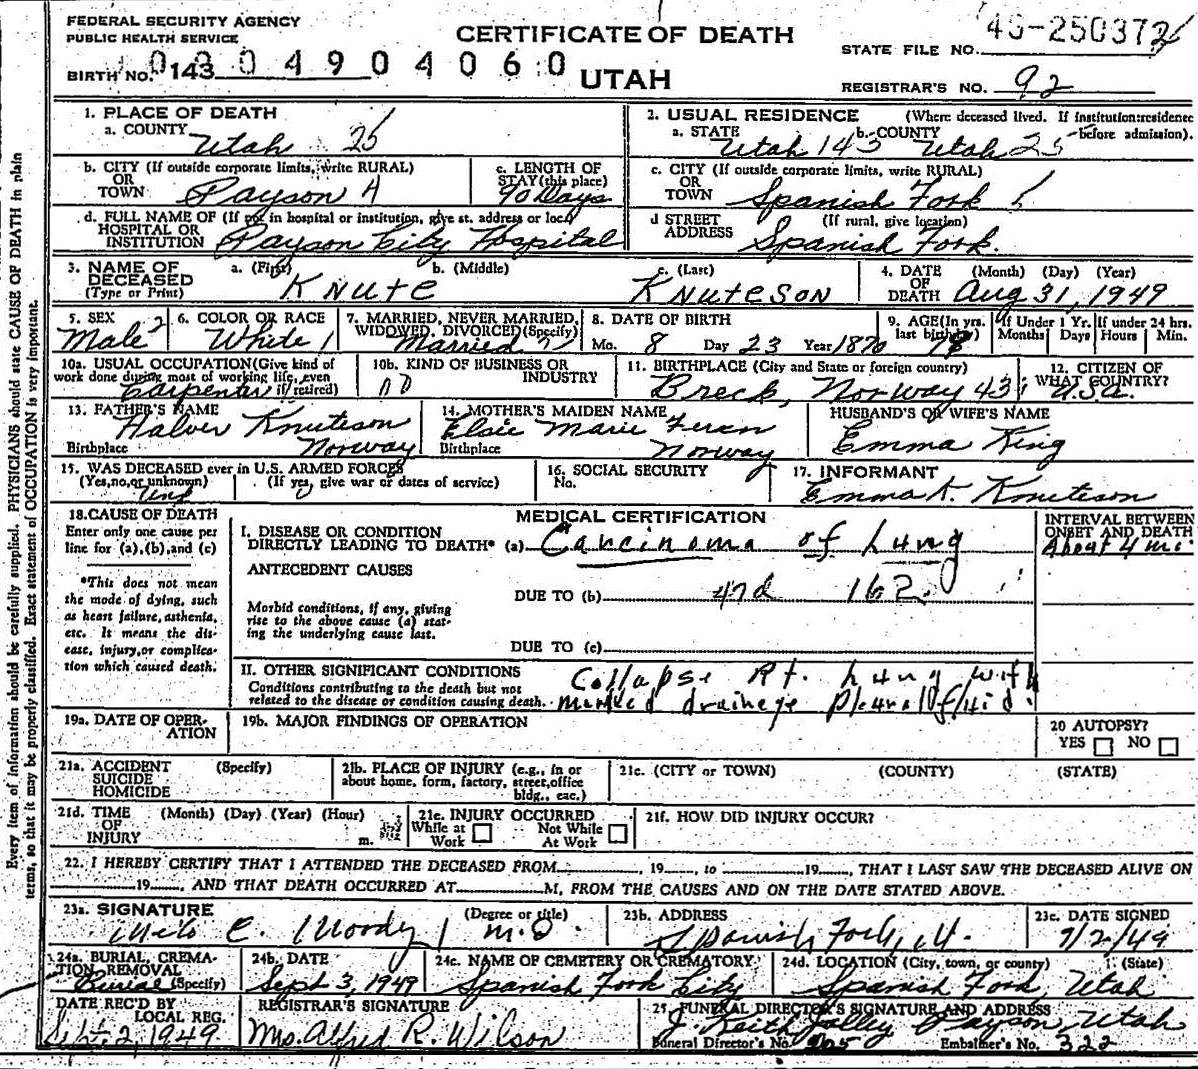 FEDERAL SECURITY AGENCY
PUBLIC HEALTH SERVICE
CERTIFICATE OF DEATH
UTAH
STATE FILE NO. 49-250372
BIRTH NO. 143
0 0 0 4 9 0 4 0 6 0
REGISTRAR'S NO. 92
1. PLACE OF DEATH
a. COUNTY Utah 25
2. USUAL RESIDENCE (Where deceased lived. If institution:residence before admission).
a. STATE Utah 143 b. COUNTY Utah 25
b. CITY (If outside corporate limits, write RURAL) OR TOWN Payson H
c. LENGTH OF STAY (this place) 90 Days
c. CITY (If outside corporate limits, write RURAL) OR TOWN Spanish Fork
d. FULL NAME OF (If not in hospital or institution, give st. address or loc.) HOSPITAL OR INSTITUTION Payson City Hospital
d STREET ADDRESS (If rural, give location) Spanish Fork.
3. NAME OF DECEASED (Type or Print) a. (First) KNUTE b. (Middle) c. (Last) KNUTESON
4. DATE OF DEATH (Month) (Day) (Year) Aug 31, 1949
5. SEX Male 2
6. COLOR OR RACE White 1
7. MARRIED, NEVER MARRIED, WIDOWED, DIVORCED (Specify) Married 2
8. DATE OF BIRTH Mo. 8 Day 23 Year 1870
9. AGE (In yrs. last birthday)
If Under 1 Yr. Months Days
If under 24 hrs. Hours Min.
10a. USUAL OCCUPATION (Give kind of work done during most of working life, even if retired) Carpenter
10b. KIND OF BUSINESS OR INDUSTRY
11. BIRTHPLACE (City and State or foreign country) Breck, Norway 43
12. CITIZEN OF WHAT COUNTRY? U.S.A.
13. FATHER'S NAME Halver Knuteson
Birthplace Norway
14. MOTHER'S MAIDEN NAME Elsie Marie
Birthplace Norway
HUSBAND'S OR WIFE'S NAME Emma King
15. WAS DECEASED ever in U.S. ARMED FORCES
(Yes, no, or unknown) (If yes, give war or dates of service)
16. SOCIAL SECURITY No.
17. INFORMANT Emma K. Knuteson
18. CAUSE OF DEATH
Enter only one cause per line for (a), (b), and (c)
*This does not mean the mode of dying, such as heart failure, asthenia, etc. It means the disease, injury, or complication which caused death.
MEDICAL CERTIFICATION
I. DISEASE OR CONDITION DIRECTLY LEADING TO DEATH* (a) Carcinoma of Lung
INTERVAL BETWEEN ONSET AND DEATH About 4 mo.
ANTECEDENT CAUSES
DUE TO (b) 47d 162.
Morbid conditions, if any, giving rise to the above cause (a) stating the underlying cause last.
DUE TO (c)
II. OTHER SIGNIFICANT CONDITIONS
Conditions contributing to the death but not related to the disease or condition causing death.
Collapse Rt. Lung with
marked drainege Pleural fluid.
19a. DATE OF OPERATION
19b. MAJOR FINDINGS OF OPERATION
20 AUTOPSY? YES NO
21a. ACCIDENT SUICIDE HOMICIDE (Specify)
21b. PLACE OF INJURY (e.g., in or about home, form, factory, street, office bldg., eac.)
21c. (CITY or TOWN) (COUNTY) (STATE)
21d. TIME OF INJURY (Month) (Day) (Year) (Hour) m.
21e. INJURY OCCURRED While at Work Not While At Work
21f. HOW DID INJURY OCCUR?
22. I HEREBY CERTIFY THAT I ATTENDED THE DECEASED FROM , 19 , to 19 , THAT I LAST SAW THE DECEASED ALIVE ON
19 , AND THAT DEATH OCCURRED AT M, FROM THE CAUSES AND ON THE DATE STATED ABOVE.
23a. SIGNATURE (Degree or title) Milo C. Moody M.D
23b. ADDRESS Spanish Fork, U.
23c. DATE SIGNED 9/2/49
24a. BURIAL, CREMATION, REMOVAL (Specify) Burial
24b. DATE Sept 3, 1949
24c. NAME OF CEMETERY OR CREMATORY Spanish Fork City
24d. LOCATION (City, town, or county) (State) Spanish Fork, Utah
DATE REC'D BY LOCAL REG. Sept. 2, 1949
REGISTRAR'S SIGNATURE Mrs. Alfred R. Wilson
25. FUNERAL DIRECTOR'S SIGNATURE AND ADDRESS J. Keith Jolley Payson, Utah
Funeral Director's No. Embalmer's No. 322
Every item of information should be carefully supplied. PHYSICIANS should state CAUSE OF DEATH in plain
terms, so that it may be properly classified. Exact statement of OCCUPATION is very important.